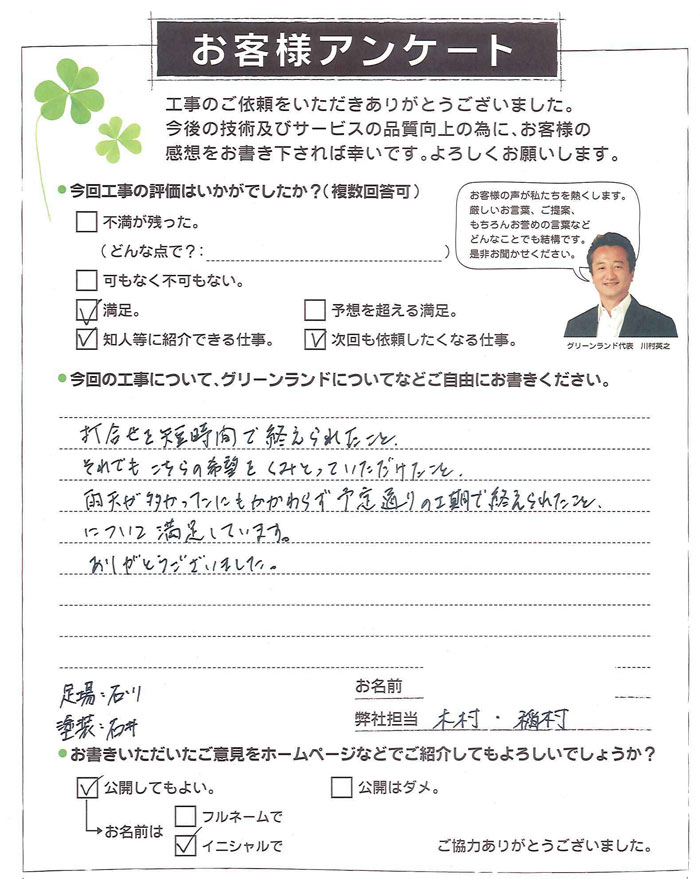 お客様アンケート
工事のご依頼をいただきありがとうございました。
今後の技術及びサービスの品質向上の為に、お客様の
感想をお書き下されば幸いです。よろしくお願いします。
●今回工事の評価はいかがでしたか?(複数回答可)
お客様の声が私たちを熱くします。
厳しいお言葉、ご提案、
もちろんお誉めの言葉など
どんなことでも結構です。
是非お聞かせください。
不満が残った。
(どんな点で?: )
可もなく不可もない。
満足。 予想を超える満足。
知人等に紹介できる仕事。 次回も依頼したくなる仕事。
グリーンランド代表 川村英之
●今回の工事について、グリーンランドについてなどご自由にお書きください。
打合せを短時間で終えられたこと、
それでもこちらの希望をくみとっていただけたこと、
雨天が多かったにもかかわらず予定通りの工期で終えられたこと、
について満足しています。
ありがとうございました。
お名前
足場:石川
弊社担当 木村・稲村
塗装:石井
●お書きいただいたご意見をホームページなどでご紹介してもよろしいでしょうか?
公開してもよい。 公開はダメ。
お名前は フルネームで
イニシャルで
ご協力ありがとうございました。